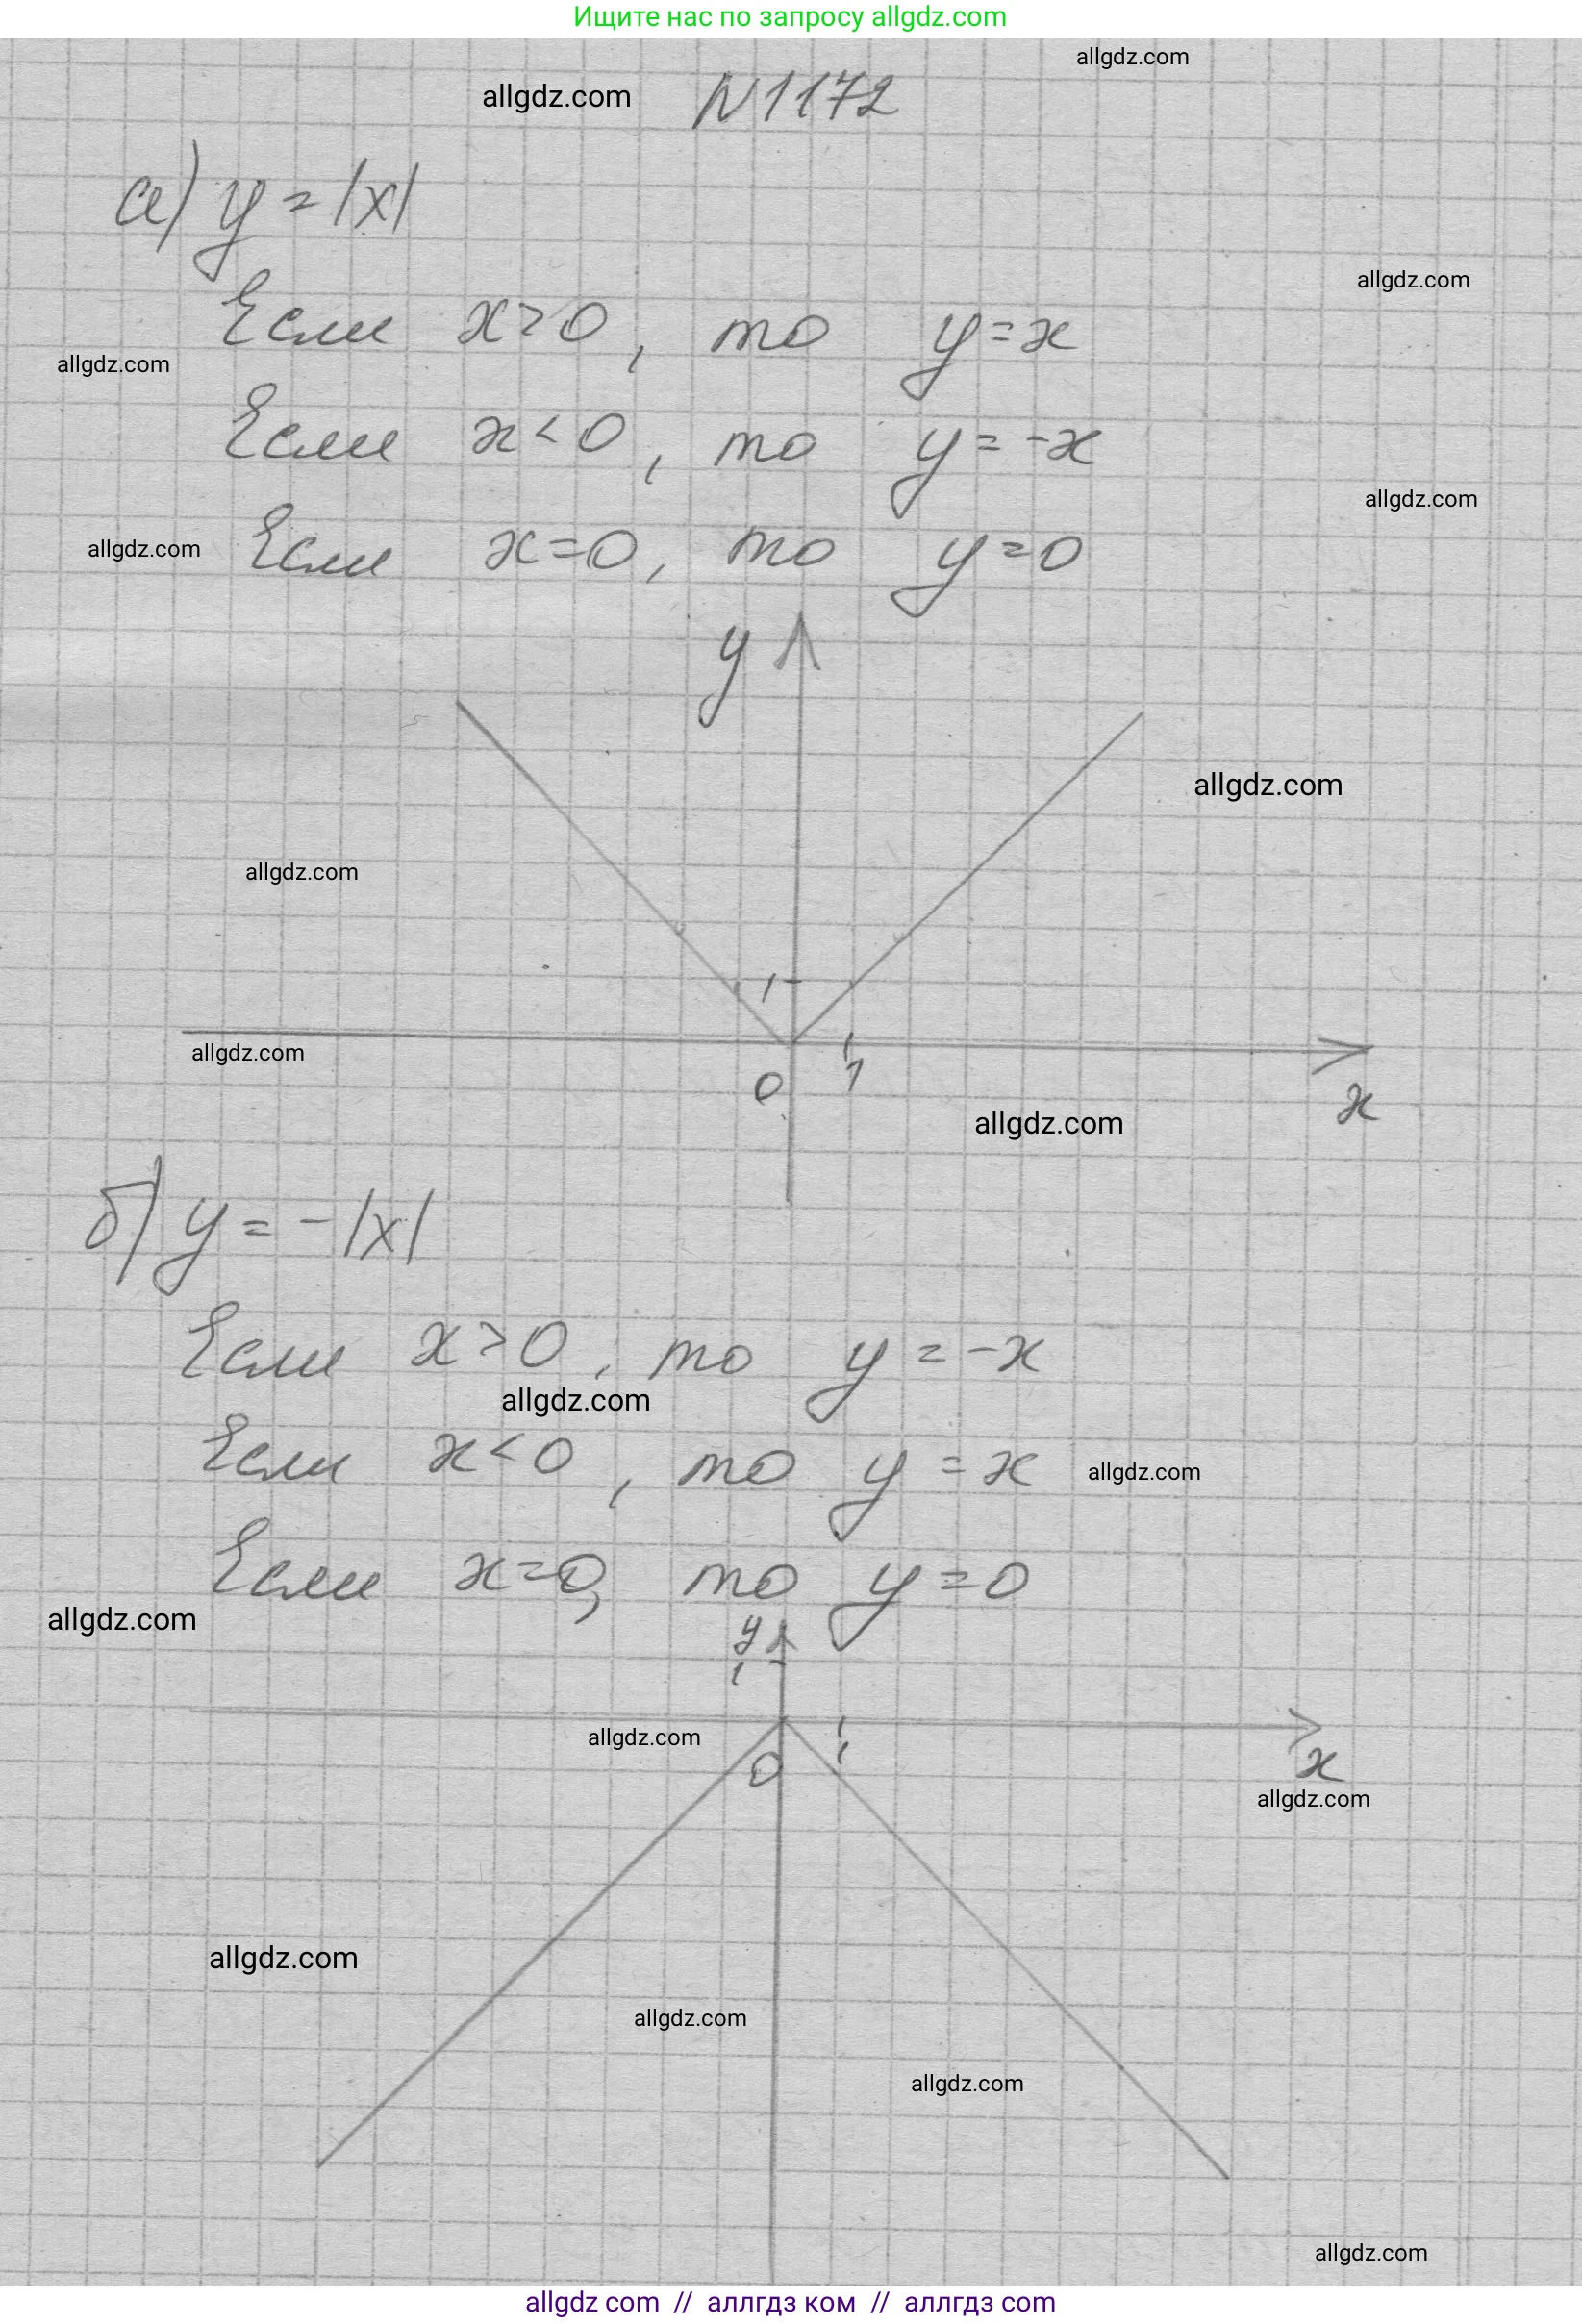 Ищите нас по запросу allgdz.com
allgdz.com
allgdz.com N1172
а) y = |x|
allgdz.com
Если x>0, то y=x
allgdz.com
Если x<0, то y=-x
allgdz.com
allgdz.com Если x=0, то y=0
y
allgdz.com
allgdz.com
1
allgdz.com
0 1
x
allgdz.com
б) y = -|x|
Если x>0, то y=-x
allgdz.com
Если x<0, то y=x allgdz.com
Если x=0, то y=0
allgdz.com
y
1
allgdz.com
0 1 x
allgdz.com
allgdz.com
allgdz.com
allgdz.com
allgdz.com
allgdz com // аллгдз ком // аллгдз com